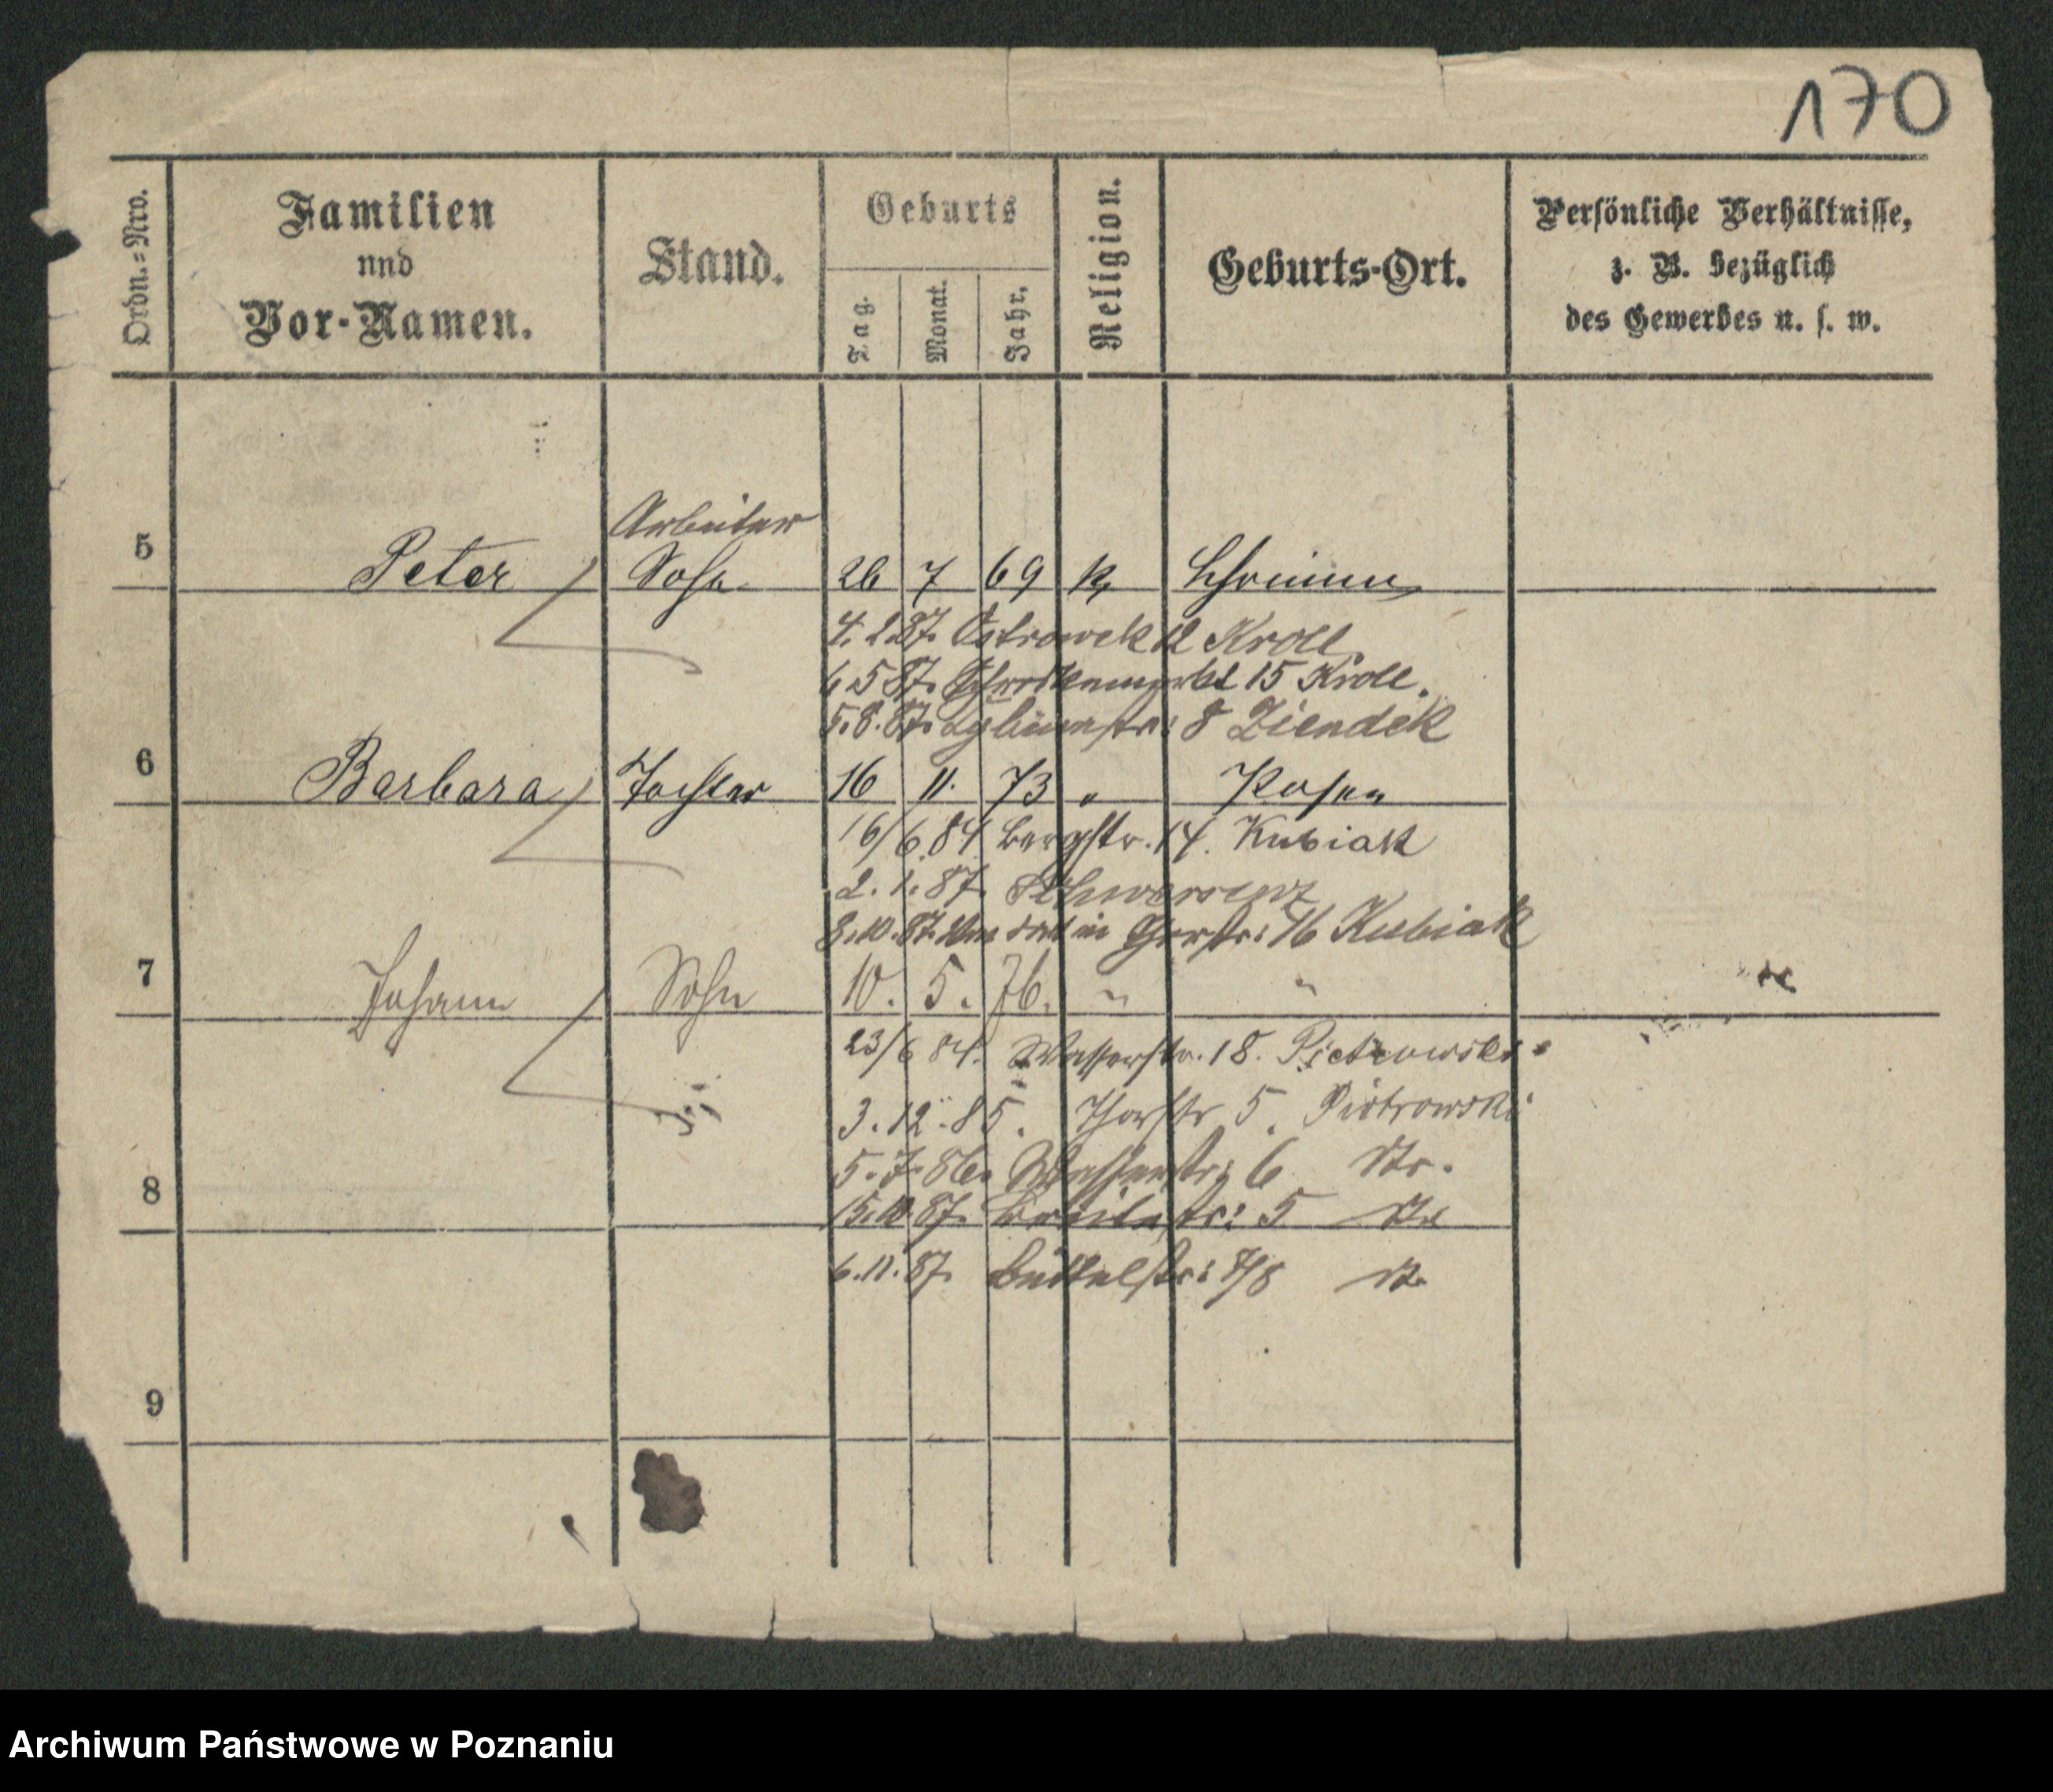 170
Ordn.=Nro.
Familien
und
Vor-Namen.
Stand.
Geburts
Tag.
Monat.
Jahr.
Religion.
Geburts-Ort.
Persönliche Verhältnisse,
z. B. bezüglich
des Gewerbes u. s. w.
Arbeiter
5 Peter Sohn 26 7 69 k. Schrimm
4. 2. 87. Ostrowek 12 Kroll.
6. 5 87. 15 Kroll.
5. 8. 87. 8 Ziendek
6 Barbara Tochter 16 11. 73 " Posen
16/6. 84 Bergstr. 14. Kubiak
2. 1. 87. Schwersenz
8. 10. 87. Von dort in 16 Kubiak
7 Johann Sohn 10. 5. 76. " "
23/6 84. Wasserstr. 18. Pietrowski
3. 12. 85. Thorstr 5. Piotrowski
5. 7. 86. Wasserstr: 6 Str.
8
15. 10. 87. Breitestr: 5
6. 11. 87. Büttelstr: 7/8
9
Archiwum Państwowe w Poznaniu